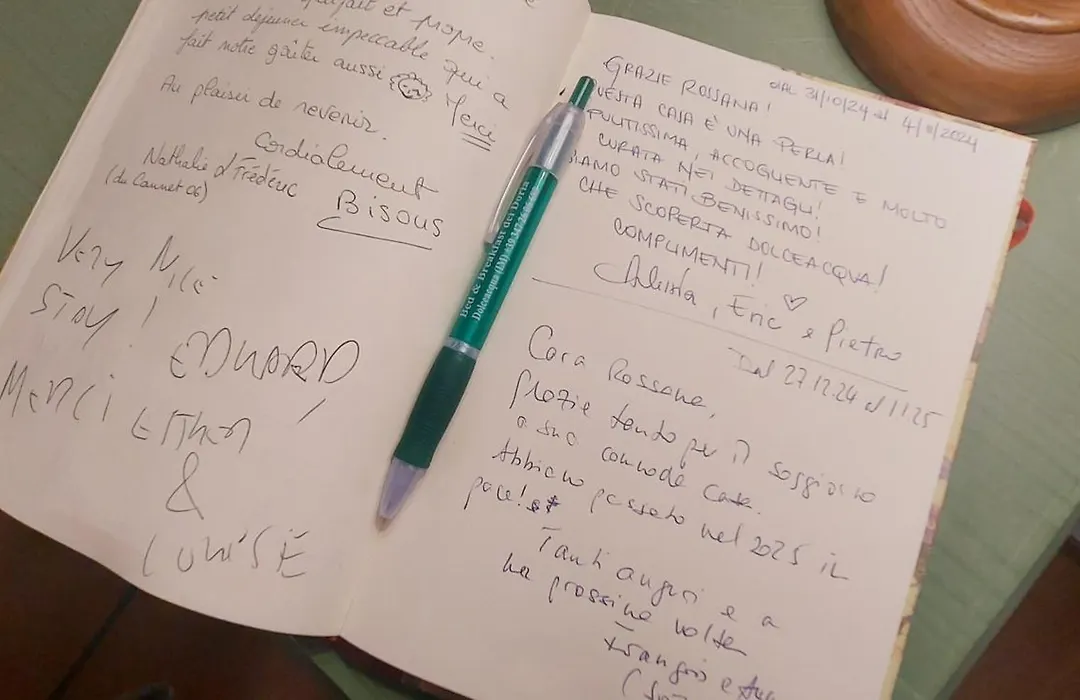 parfait et
petit déjeuner impeccable qui a
fait notre goûter aussi
Merci
Au plaisir de revenir.
Cordialement
Nathalie & Frédéric
(du Cannet 06)
Bisous
Very Nice
Stay!
EDUARD
Merci
&
GRAZIE ROSSANA!
DAL 31/10/24 al 4/11/2024
UESTA CASA È UNA PERLA!
PULITISSIMA, ACCOGLIENTE E MOLTO
CURATA NEI DETTAGLI!
SIAMO STATI BENISSIMO!
CHE SCOPERTA DOLCEACQUA!
COMPLIMENTI!
, Eric e Pietro
Dal 27.12.24 al 1.1.25
Cara Rossana,
grazie tanto per il soggiorno
a sua comoda casa.
Abbiamo passato nel 2025 in
pace!
Tanti auguri e a
la prossima volta
Bed & Breakfast dei Doria
Dolceacqua (IM) +39 347